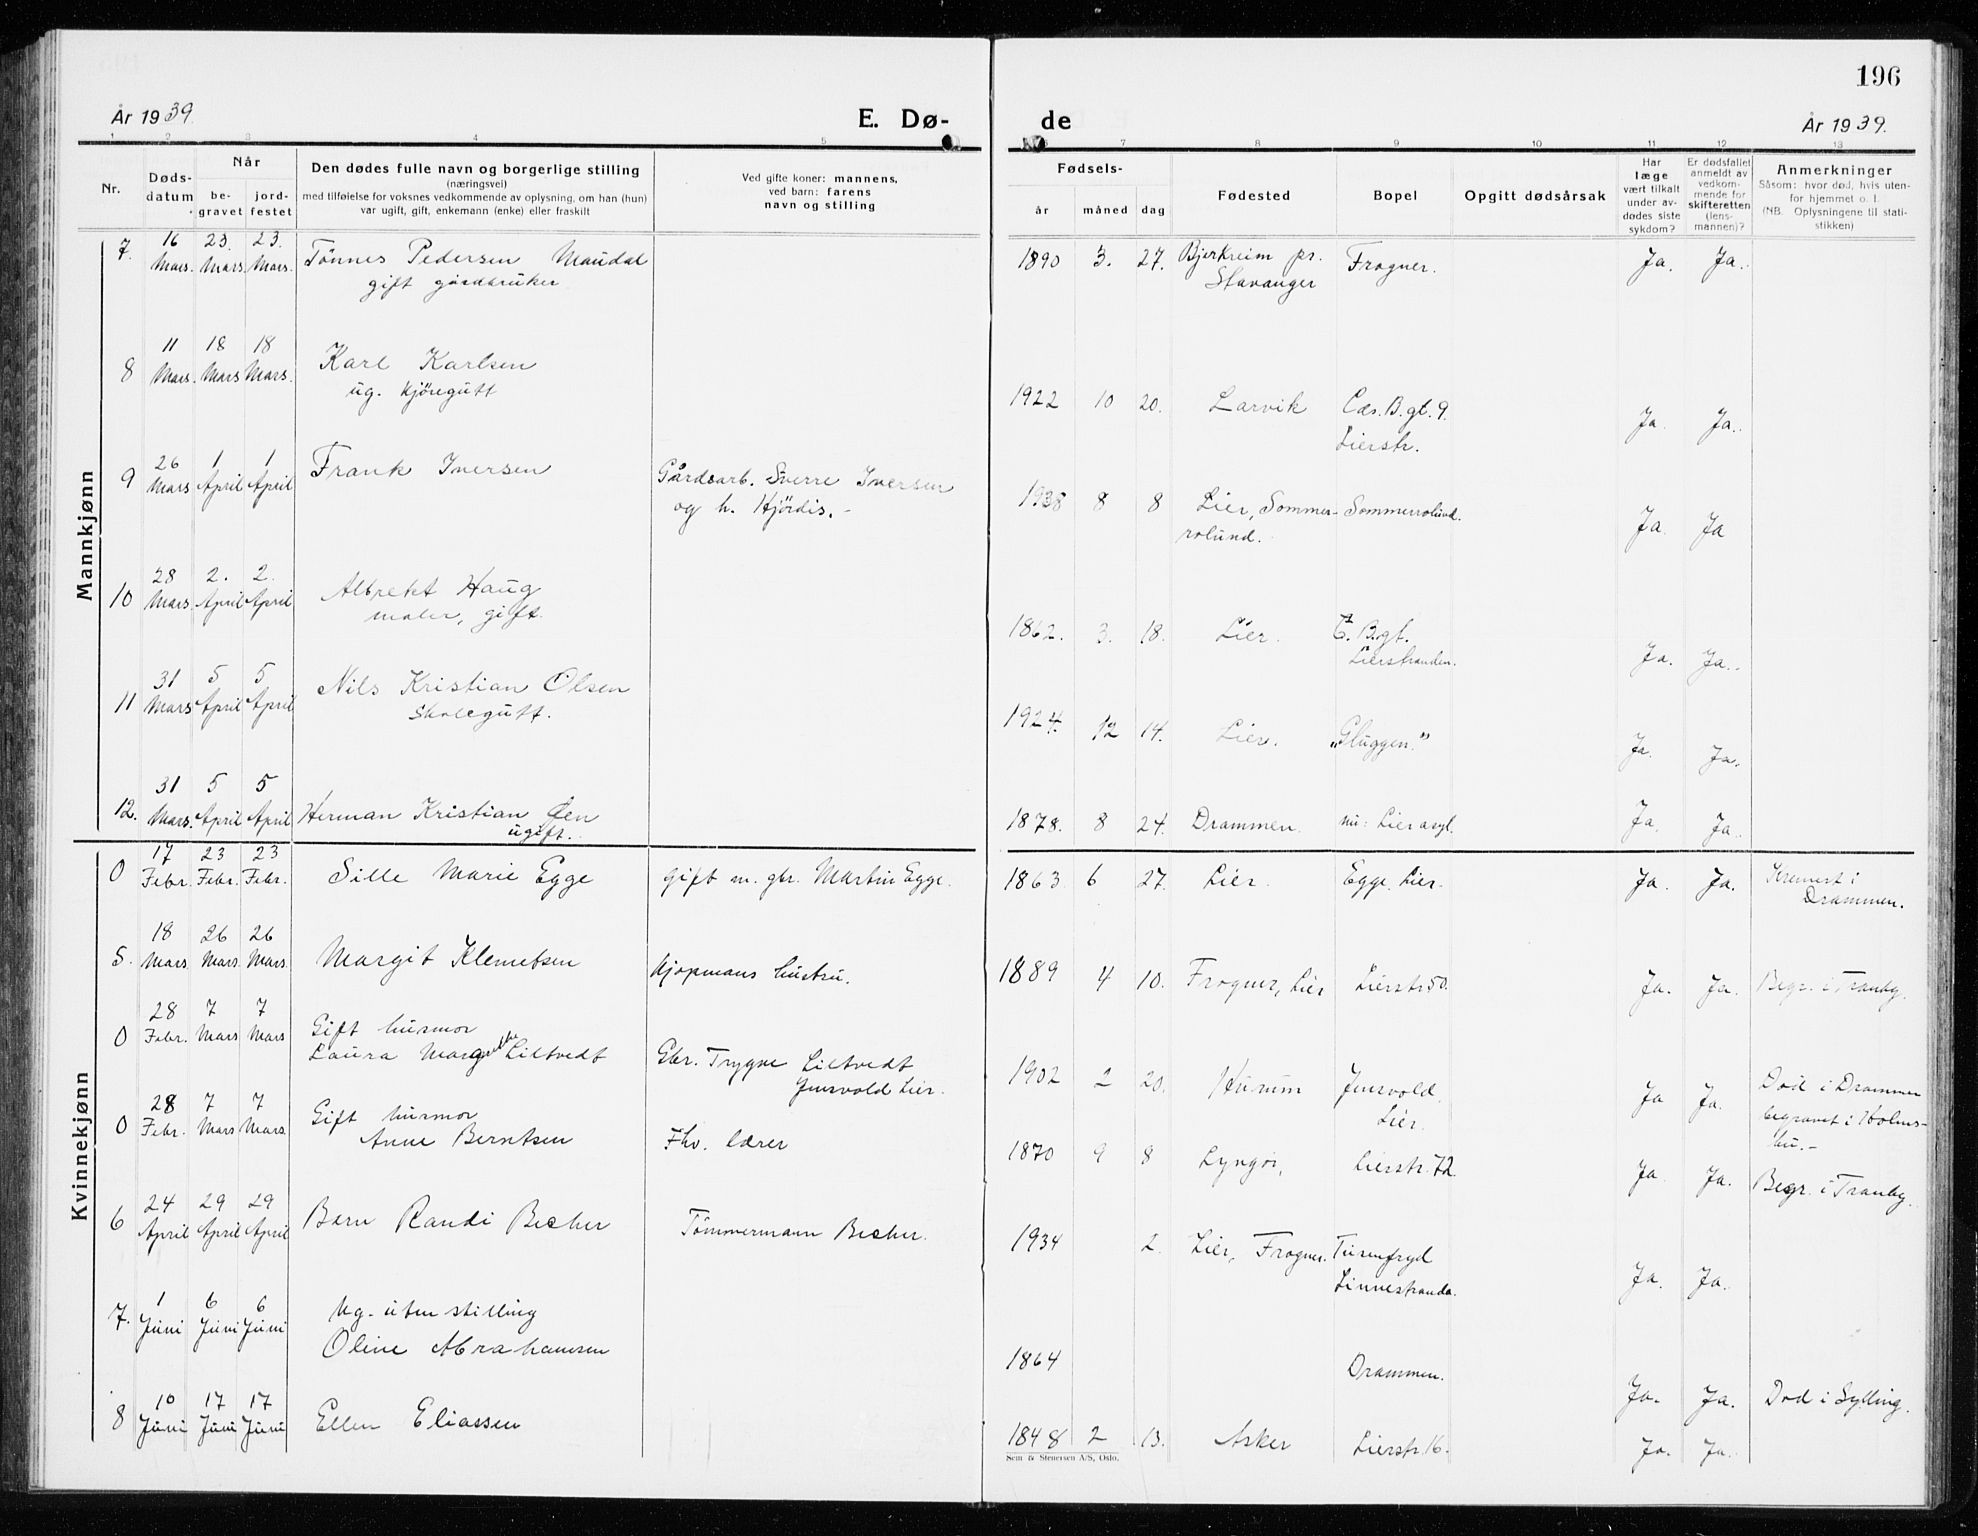 196
År 1939.
E. Dø-
de
År 1939.
1 2 3 4 5 6 7 8 9 10 11 12 13
Nr.
Døds-
datum
Når
be-
gravet
jord-
festet
Den dødes fulle navn og borgerlige stilling
(næringsvei)
med tilføielse for voksnes vedkommende av oplysning, om han (hun)
var ugift, gift, enkemann (enke) eller fraskilt
Ved gifte koner: mannens,
ved barn: farens
navn og stilling
Fødsels-
år
måned
dag
Fødested
Bopel
Opgitt dødsårsak
Har
læge
vært tilkalt
under av-
dødes siste
sykdom?
Er dødsfallet
anmeldt av
vedkom-
mende for
skifteretten
(lens-
mannen)?
Anmerkninger
Såsom: hvor død, hvis uten-
for hjemmet o. l.
(NB. Oplysningene til stati-
stikken)
Mannkjønn
16 23. 23.
7. Mars. Mars Mars. Tönnes Pedersen Maudal 1890 3. 27. Bjerkreim pr. Frogner. Ja. Ja.
gift gårdbruker Stavanger
11 18 18
8 Mars. Mars Mars. Karl Karlsen
ug. kjöregutt
1922 10 20. Larvik Cas. B. gt. 9. Ja. Ja.
Lierstr.
26 1 1
9 Mars April April Frank Iversen Gårdsarb. Sverre Iversen
og h. Hjördis. -
1938 8 8 Lier, Sommer- Sommerrolund. Ja. Ja
rolund.
28 2. 2.
10 Mars April April Albrekt Haug
maler, gift.
1862. 3. 18. Lier. B. gt. Ja. Ja.
Lierstranden.
31 5 5
11 Mars April April Nils Kristian Olsen
skolegutt.
1924. 12 14. Lier. "Gluggen." Ja. Ja.
31 5 5
12. Mars. April April Herman Kristian Öen 1878. 8 24. Drammen. nu: Lier asyl. Ja. Ja.
ugift.
Kvinnekjønn
17 23 23
0 Febr. Febr. Febr. Sille Marie Egge gift m. gbr. Martin Egge. 1863 6 27. Lier. Egge. Lier. Ja. Ja. Kremert i
Drammen.
18 26 26
5. Mars Mars. Mars. Margit Klemetsen Kjøpmans hustru. 1889 4 10. Frogner, Lier Lierstr 50. Ja. Ja. Begr. i Tranby.
28 7 7
0 Febr. Mars Mars Gift husmor
Laura Margrethe Liltvedt Gbr. Trygve Liltvedt
Jensvold Lier.
1902 2 20. Hurum Jensvold Ja Ja. Död i Drammen
Lier. begravet i Holms-
bu. -
28 7 7
0 Febr. Mars Mars. Gift husmor
Anne Berntsen Fhv. lærer
1870 9 8 Lyngör, Lierstr. 72. Ja. Ja. Begr. i Tranby.
24 29 29
6 April April April Barn Randi Becher Tömmermann Becher.
1934 2. Lier, Frogner. Tusenfryd
Linnestranda. Ja. Ja.
1 6 6
7. Juni Juni Juni Ug. uten stilling
Oline Abrahamsen
1864 Drammen. Ja. Ja. Död i Sylling.
10 17 17
8 Juni Juni Juni Ellen Eliassen
1848 2 13. Asker Lierstr. 16. Ja. Ja.
Sem & Stenersen A/S, Oslo.